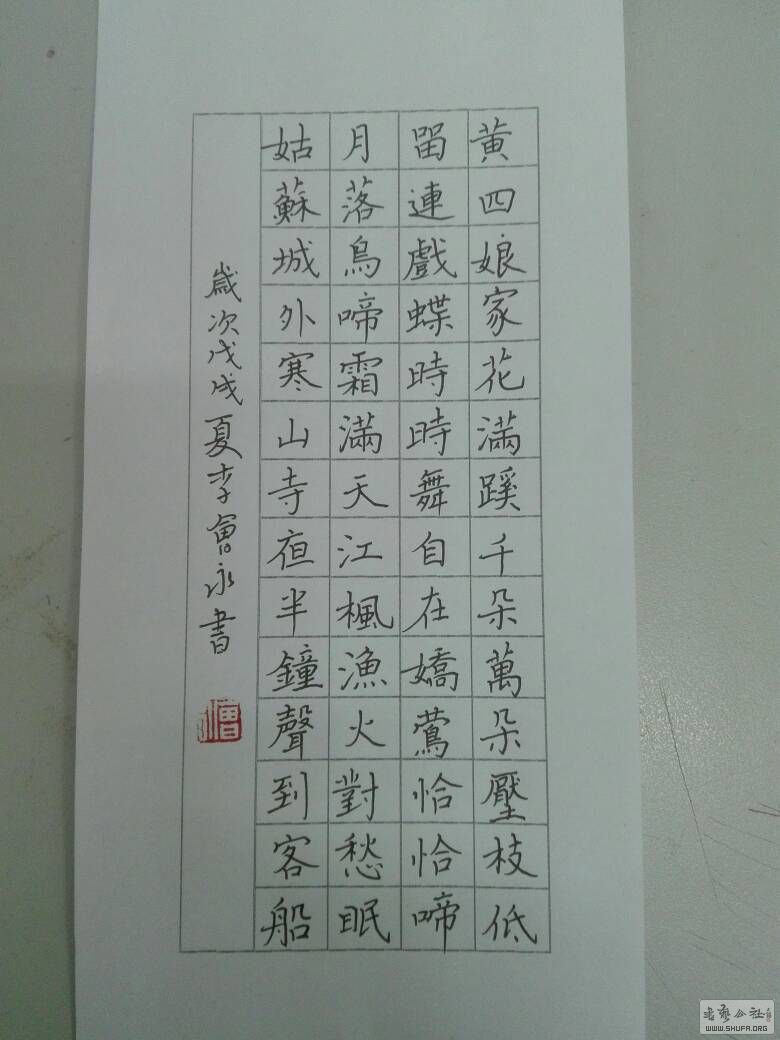 黃四娘家花滿蹊千朵萬朵壓枝低
留連戲蝶時時舞自在嬌鶯恰恰啼
月落烏啼霜滿天江楓漁火對愁眠
姑蘇城外寒山寺夜半鐘聲到客船
歲次戊戌夏李會永書
WWW.SHUFA.ORG